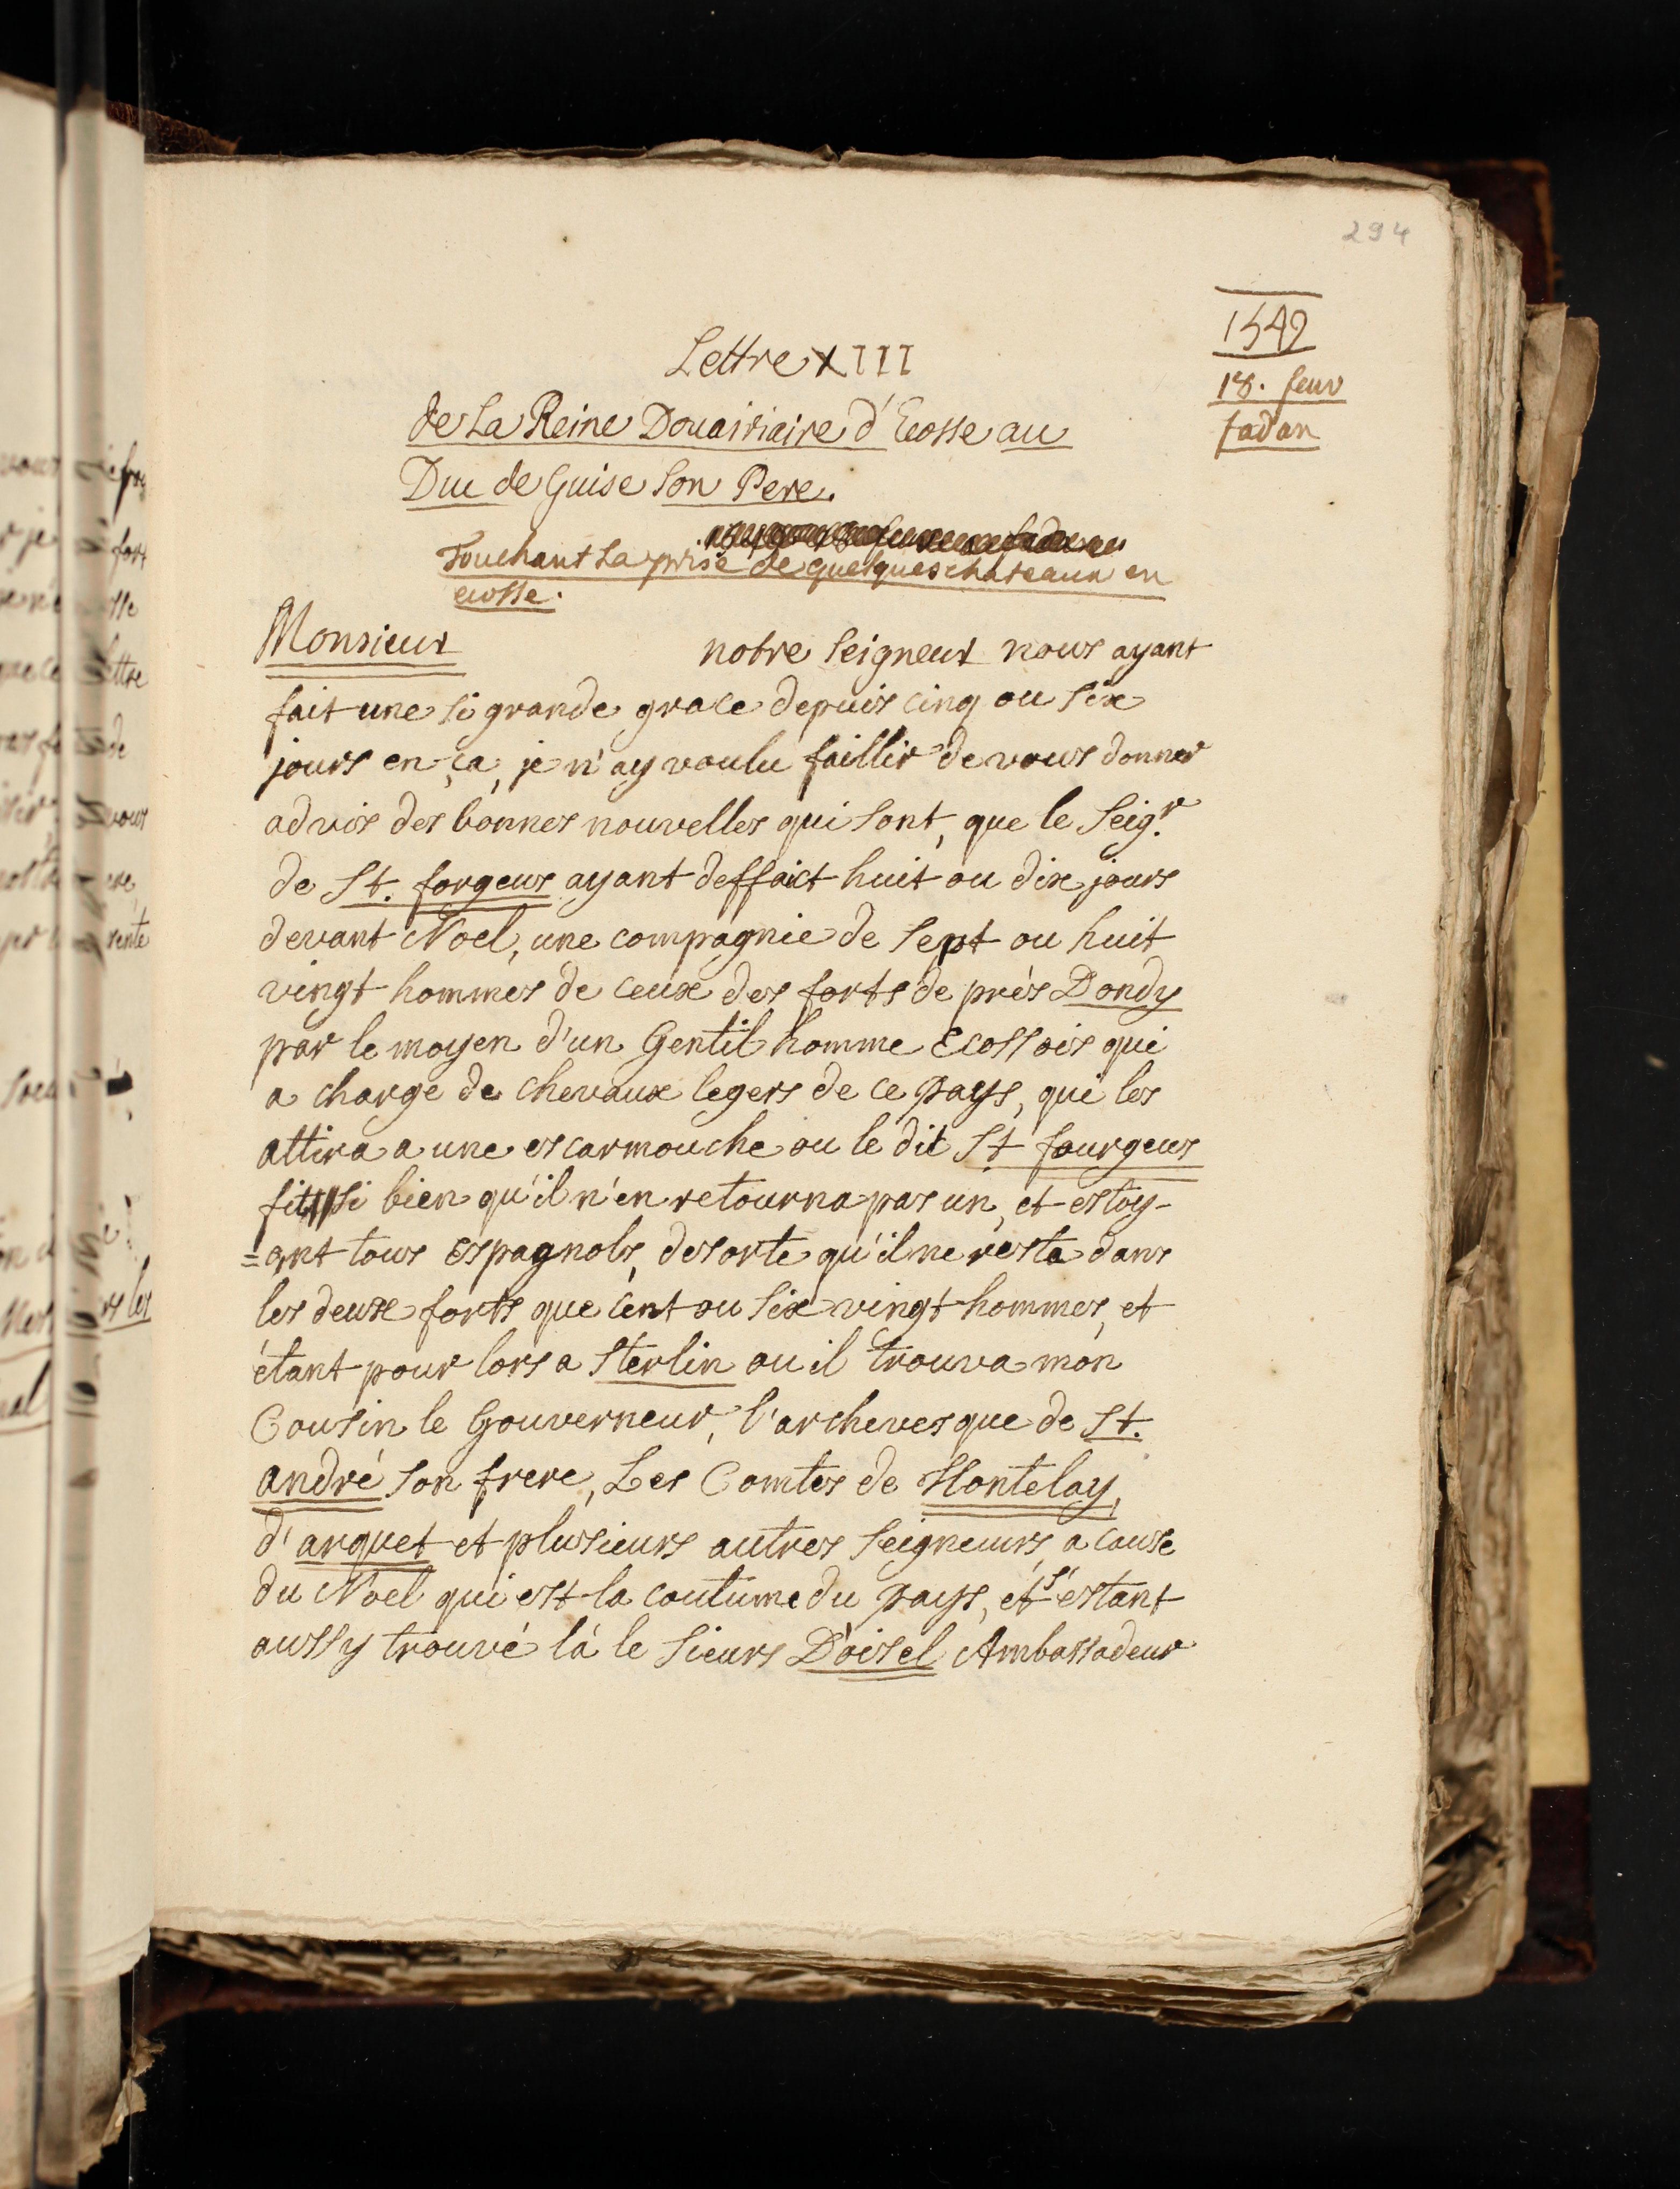 294
1549
18. feuv
fadan
Lettre XIII
de La Reine Douairiaire d'Ecosse au
Duc de Guise Son Pere.
Touchant La prise de quelques chateaux en
ecosse.
Monsieur notre Seigneur nous ayant
fait une si grande grace depuis cinq ou six
jours en-ça, je n'ay voulu faillir de vous donner
advis des bonnes nouvelles qui sont, que le Seigr.
de St. forgeus ayant deffaict huit ou dix jours
devant Noel, une compagnie de sept ou huit
vingt hommes de ceux des forts de près Dondy
par le moyen d'un Gentil homme Ecossois qui
a charge de chevaux legers de ce pays, qui les
attira a une escarmouche ou le dit St fourgeus
fit si bien qu'il n'en retourna pas un, et estoy-
=ant tous Espagnols, desorte qu'il ne resta dans
les deux forts que cent ou six vingt hommes, et
étant pour lors a Sterlin ou il trouva mon
Cousin le Gouverneur, l'archevesque de St.
andré son frere, Les Comtes de Hontelay,
d'arquet et plusieurs autres Seigneurs, a cause
du Noel qui est la coutume du pays, et s'estant
aussy trouvé là le Sieurs D'oisel Ambassadeur